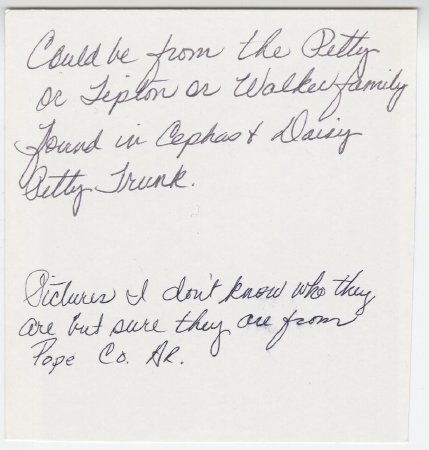 Could be from the Petty
or Tipton or Walker family
found in Cephas & Daisy
Petty Trunk.
Pictures I don't know who they
are but sure they are from
Pope Co. AR.